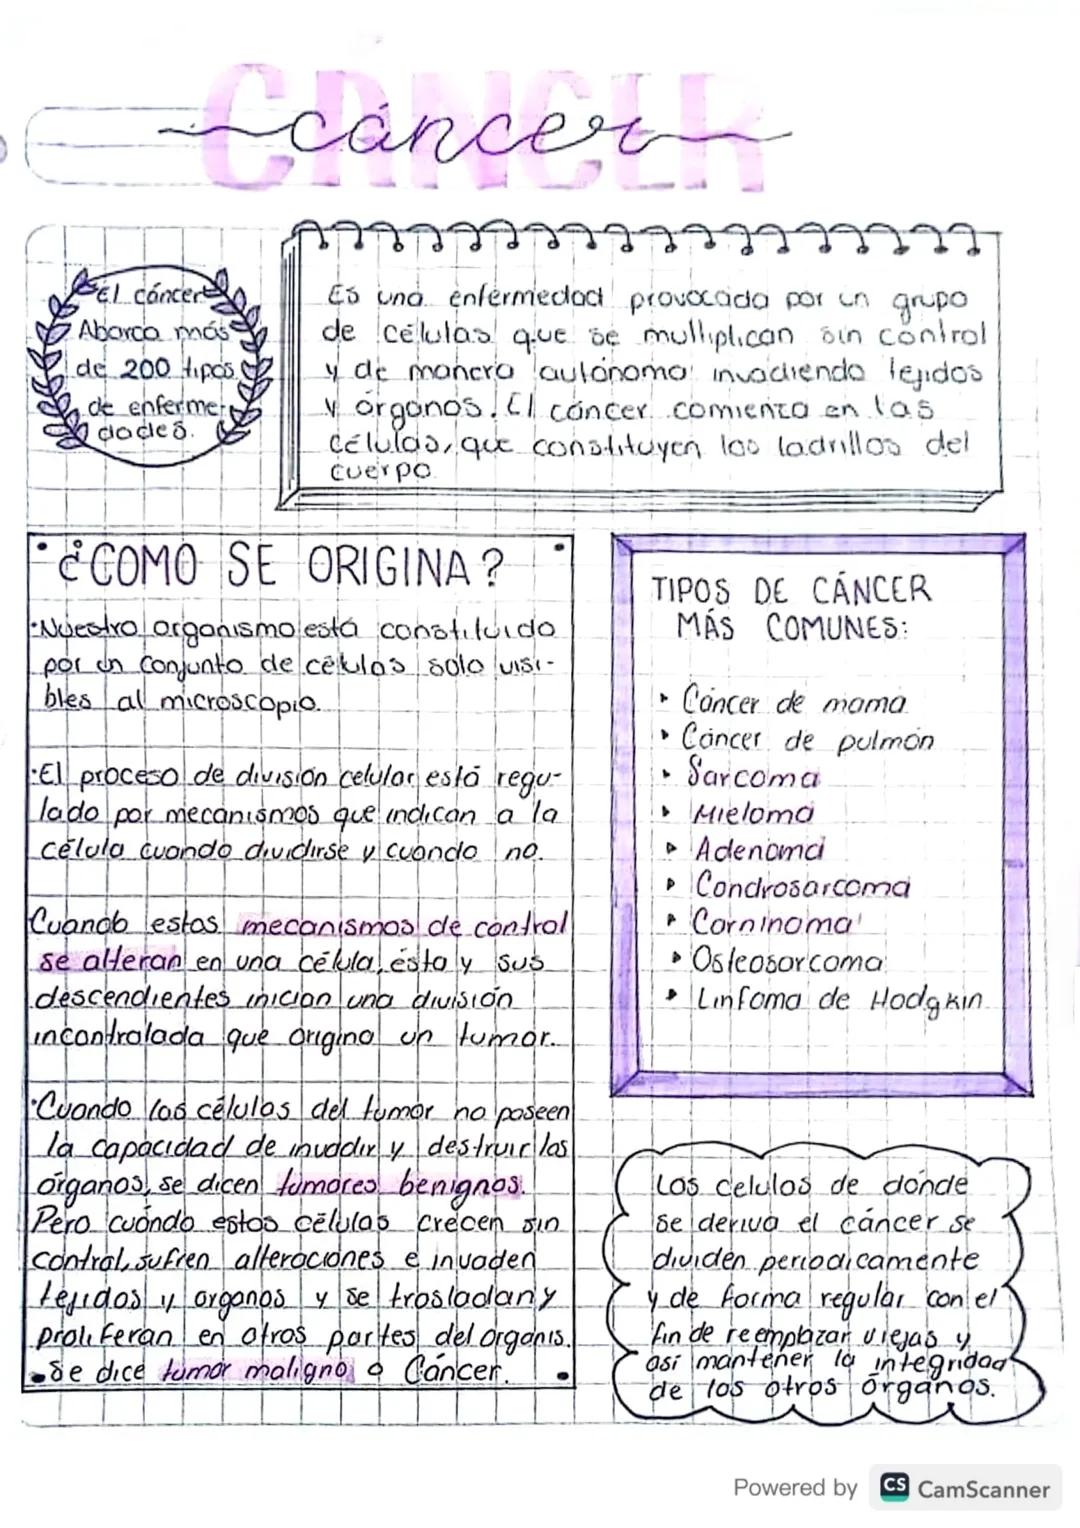 CÁNCER
cáncer
El cáncer
Abarca más
de 200 tipos
de enferme-
dades.
Es una enfermedad provocada por un grupo
de células que se multiplican sin control
y de manera autónoma invadiendo tejidos
y órganos. El cáncer comienza en las
células, que constituyen los ladrillos del
cuerpo.
¿COMO SE ORIGINA?
·Nuestro organismo está constituido
por un conjunto de células solo visi-
bles al microscopio.
·El proceso de división celular está regu-
lado por mecanismos que indican a la
célula cuando dividirse y cuando no.
Cuando estos mecanismos de control
se alteran en una célula, ésta y sus
descendientes inician una división
incontralada que origina un tumor.
·Cuando las células del tumor no poseen
la capacidad de invadir y destruir los
órganos, se dicen tumores benignos.
Pero cuándo estas células crecen sin
control, sufren alteraciones e invaden
tejidos y organos y se trasladan y
proliferan en otros partes del organis.
se dice tumor maligno o Cáncer.
TIPOS DE CÁNCER
MÁS COMUNES:
▸ Cáncer de mama
▸ Cáncer de pulmón
▸ Sarcoma
▸ Mieloma
▸ Adenoma
▸ Condrosarcoma
▸ Carninoma
▸ Osteosarcoma
▸ Linfoma de Hodgkin
Las celulas de dónde
se deriva el cáncer se
dividen periodicamente
y de forma regular con el
fin de reemplazar viejas y
así mantener la integridad
de los otros órganos.
Powered by CS CamScanner